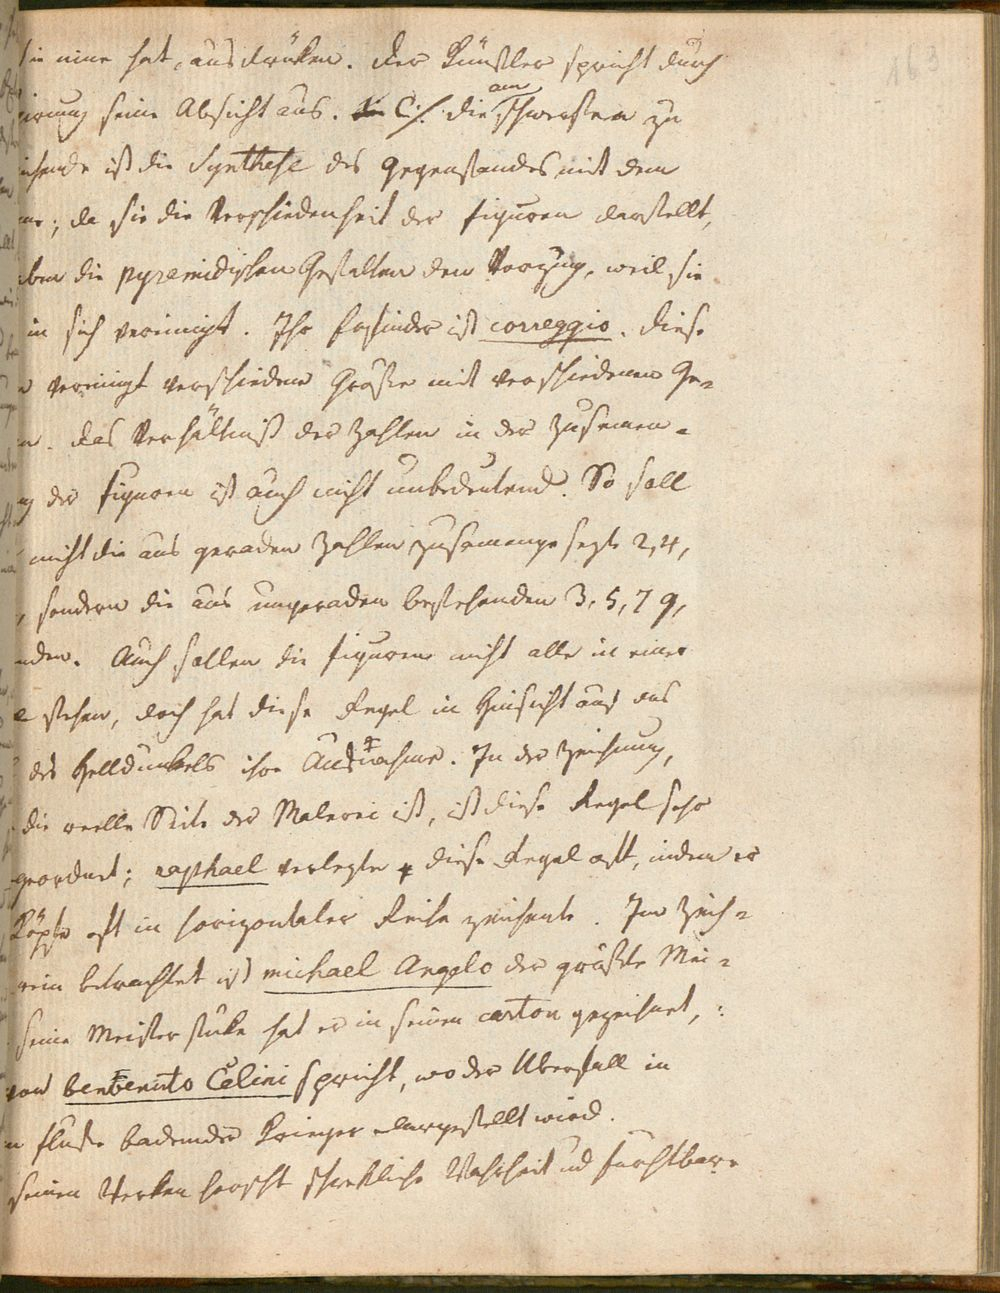 sie nur hat, ausdrüken. Der Künstler spricht durch
seine Absicht aus. C./. die am schwersten zu
ist die Synthese des Gegenstandes mit dem
; da sie die Verschiedenheit der Figuren darstellt,
die pyramidischen Gestalten den Vorzug, weil sie
in sich vereinigt. Ihr Erfinder ist Correggio. Diese
vereinigt verschiedene Größe mit verschiedenen Ge-
Das Verhältniß der Zahlen in der Zusamen-
der Figuren ist auch nicht unbedeutend. So soll
nicht die aus geraden Zahlen zusamengesezte 2, 4,
sondern die aus ungeraden bestehenden 3, 5, 7 9,
Auch sollen die Figuren nicht alle in einer
stehen, doch hat diese Regel in Hinsicht auf das
des Helldunkels ihre Ausnahme. In der Zeichnung,
die reelle Seite der Malerei ist, ist diese Regel sehr
; raphael verlezte diese Regel oft, indem er
Köpfe oft in horizontaler Reihe zeichnete. Im Zeich-
rein betrachtet ist michael Angelo der größte Mei-
seine Meisterstüke hat er in seinen carton gezeichnet, :
von benvenuto Celini spricht, wo der Überfall in
Fluße badender Krieger dargestellt wird.
seinen Werken herscht schrekliche Wahrheit und furchtbare
163